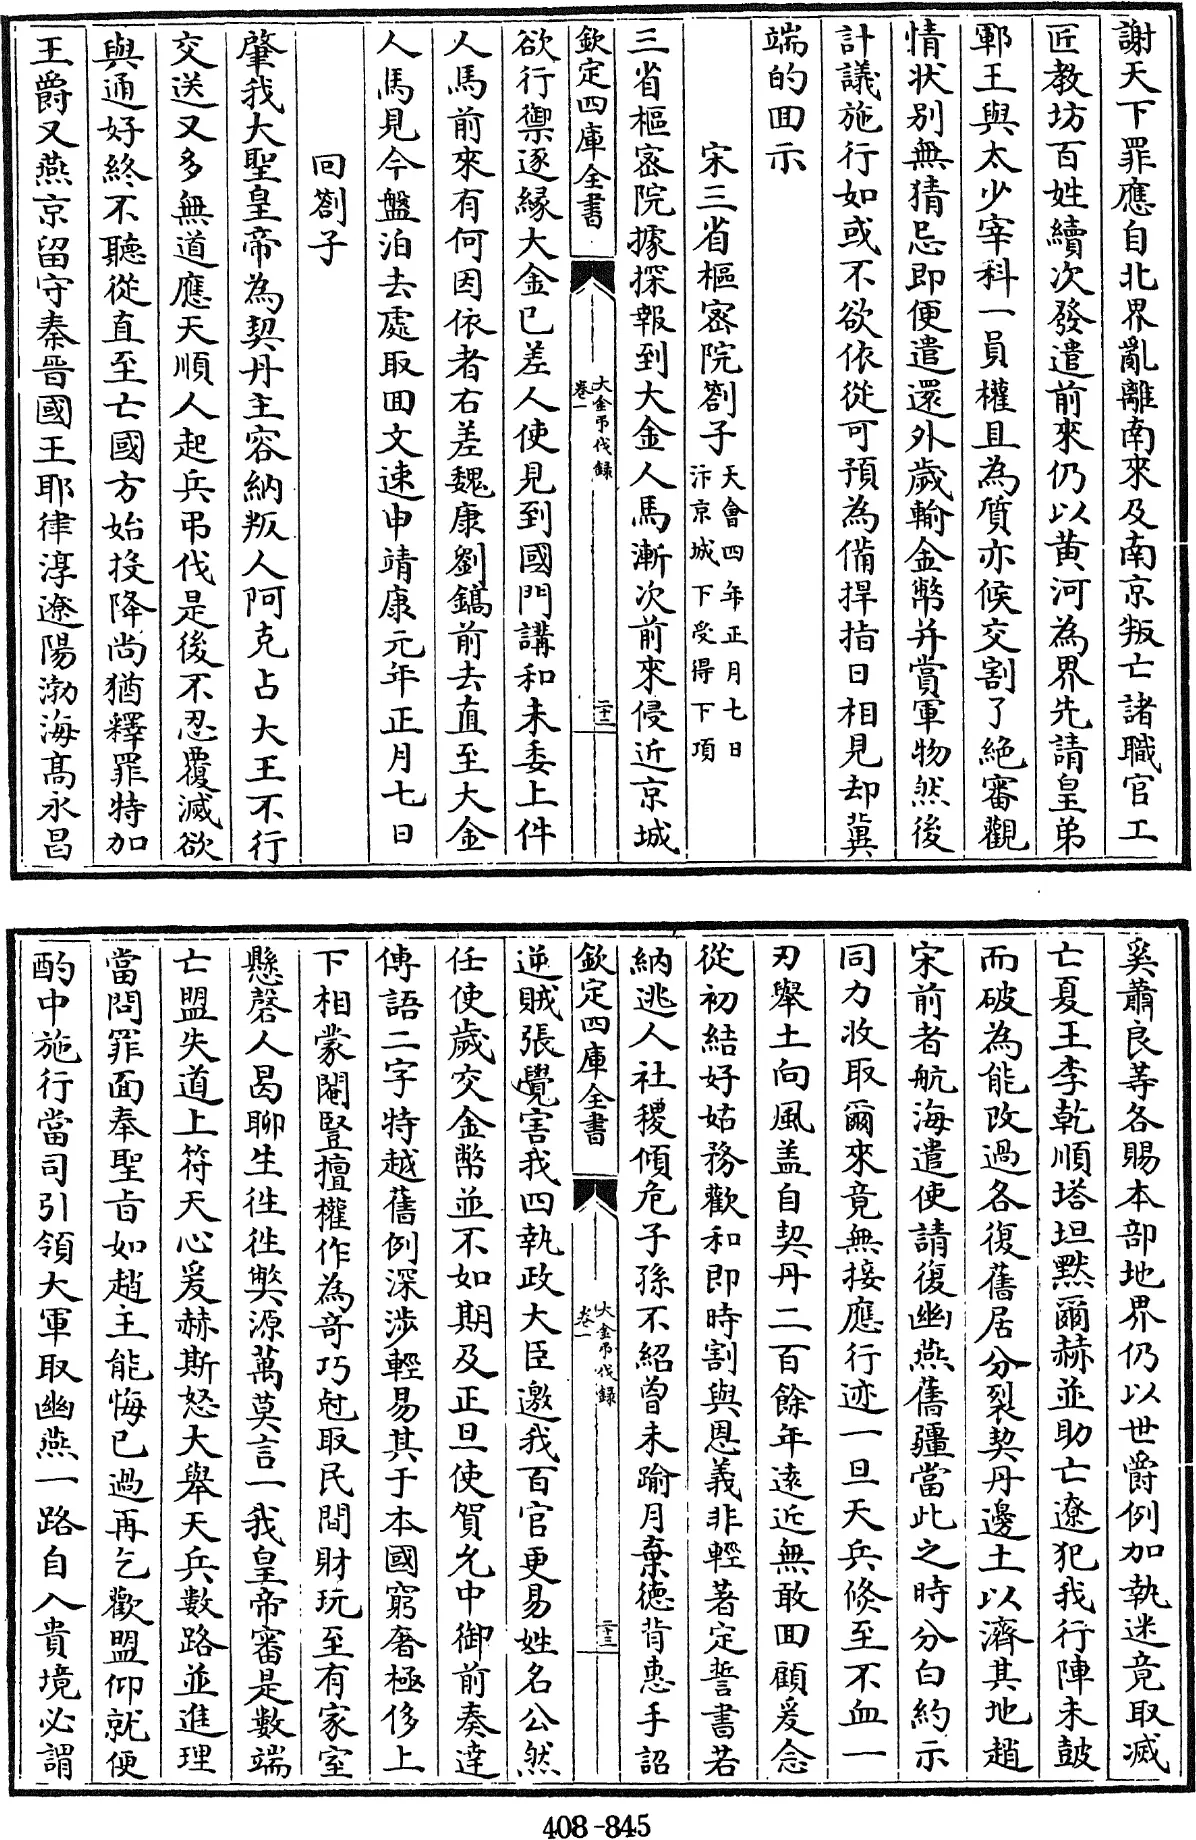 謝天下罪應自北界亂離南來及南京叛亡諸職官工
匠教坊百姓續次發遣前來仍以黄河為界先請皇弟
鄆王與太少宰科一員權且為質亦候交割了絶審觀
情状别無猜忌即便遣還外歲輸金幣并賞軍物然後
計議施行如或不欲依從可預為備捍指日相見却冀
端的囬示
宋三省樞宻院劄子天會四年正月七日
汴京城下受得下項
三省樞宻院據探報到大金人馬漸次前來侵近京城
欽定四庫全書
大金弔伐録
卷一
二十二
欲行禦逐縁大金已差人使見到國門講和未委上件
人馬前來有何因依者右差魏康劉鎬前去直至大金
人馬見今盤泊去處取囬文速申靖康元年正月七日
回劄子
肇我大聖皇帝為契丹主容納叛人阿克占大王不行
交送又多無道應天順人起兵弔伐是後不忍覆滅欲
與通好終不聽從直至亡國方始投降尚猶釋罪特加
王爵又燕京留守秦晉國王耶律淳遼陽渤海髙永昌
奚蕭良等各賜本部地界仍以世爵例加執迷竟取滅
亡夏王李乾順塔坦黙爾赫並助亡遼犯我行陣未鼓
而破為能改過各復舊居分裂契丹邊土以濟其地趙
宋前者航海遣使請復幽燕舊疆當此之時分白約示
同力收取爾來竟無接應行迹一旦天兵倐至不血一
刃舉土向風盖自契丹二百餘年遠近無敢囬顧爰念
從初結好姑務歡和即時割與恩義非輕著定誓書若
納逃人社稷傾危子孫不紹曽未踰月棄徳背恵手詔
欽定四庫全書
大金弔伐録
卷一
二十三
逆賊張覺害我四執政大臣邀我百官更易姓名公然
任使歲交金幣並不如期及正旦使賀允中御前奏達
傳語二字特越舊例深涉輕易其于本國窮奢極侈上
下相蒙閹豎擅權作為奇巧尅取民間財玩至有家室
懸磬人曷聊生徃徃弊源萬莫言一我皇帝審是數端
亡盟失道上符天心爰赫斯怒大舉天兵數路並進理
當問罪面奉聖㫖如趙主能悔已過再乞歡盟仰就便
酌中施行當司引領大軍取幽燕一路自入貴境必謂
408-845